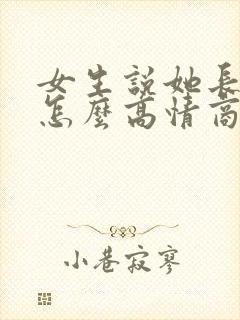 女生說她長
怎麼高情商
小巷寂寥